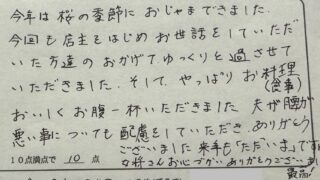 今年は桜の季節におじゃまできました.
今回も店主をはじめお世話をしていただ
いた方達のおかげでゆっくりと過させて
いただきました. そして、やっぱりお料理
(食事)
おいしくお腹一杯いただきました 夫が腰が
悪い事についても配慮をしていただき.ありがとう
ございました 来年も「ただいま」です
10点満点で 10 点
女将さんお心づかいありがとうございま
最高!